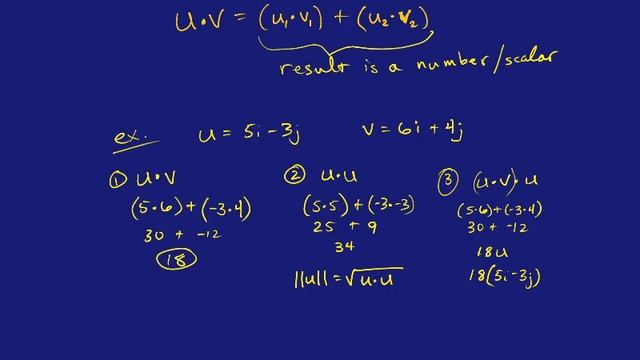 u•v = (u₁•v₁) + (u₂•v₂)
result is a number/scalar
ex. u = 5i - 3j v = 6i + 4j
① u•v
(5•6)+(-3•4)
30 + -12
18
② u•u
(5•5)+(-3•-3)
25 + 9
34
||u|| = √u•u
③ (u•v)•u
(5•6)+(-3•4)
30 + -12
18u
18(5i-3j)